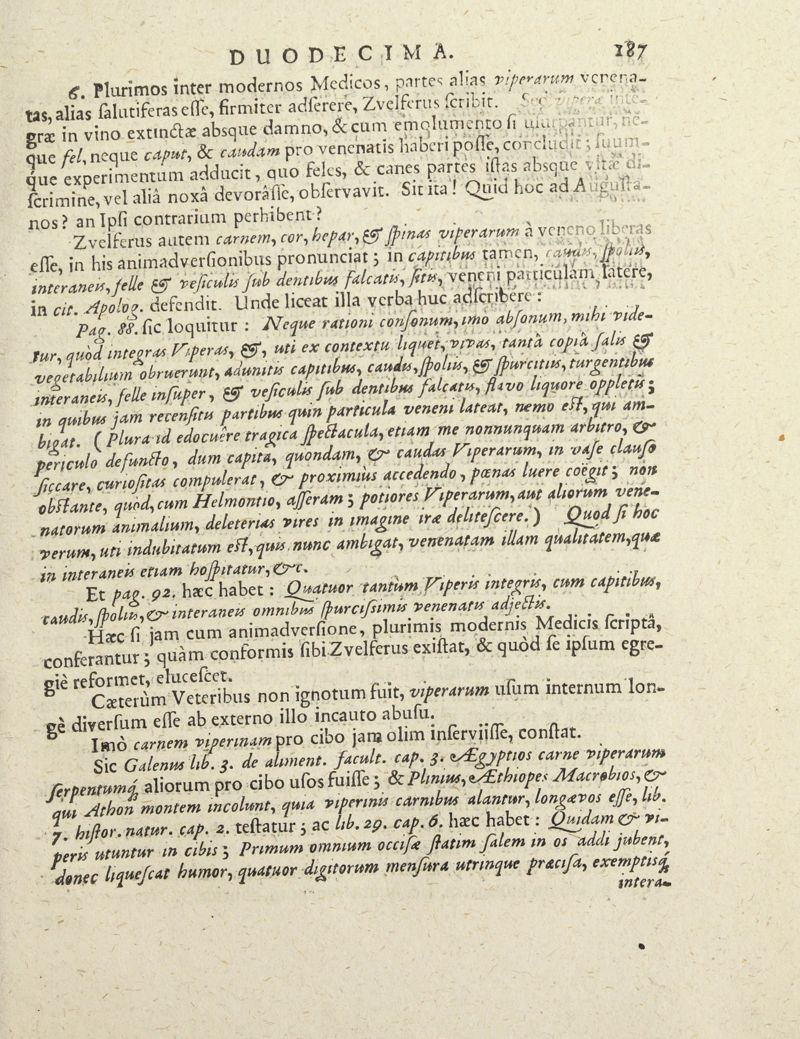 DUODECIMA. 187
6. Plurimos inter modernos Medicos, partes alias viperarum venena-
tas, alias ſalutiferas eſſe, firmiter adſerere, Zvelferus ſcribit.
græ in vino extinctæ absque damno, & cum emolumento ſi uſurpantur, ne-
que fel, neque caput, & caudam pro venenatis haberi poſſe, concludit; ſuum-
que experimentum adducit, quo feles, & canes partes iſtas absque vitæ di-
ſcrimine, vel aliâ noxâ devorâſſe, obſervavit. Sit ita! Quid hoc ad Auguſta-
nos? an Ipſi contrarium perhibent?
Zvelferus autem carnem, cor, hepar, & ſpinas viperarum à veneno liberas
eſſe, in his animadverſionibus pronunciat; in capitibus tamen, caudis, ſpoliis,
interaneis, felle & veſiculis ſub dentibus falcatis, ſitis, veneni particulam, latere,
in cit. Apolog. defendit. Unde liceat illa verba huc adſcribere:
Pag. 88. ſic loquitur: Neque rationi conſonum, imò abſonum, mihi vide-
tur, quòd integras Viperas, &, uti ex contextu liquet, vivas, tantâ copiâ ſalis &
vegetabilium obruerunt, adunitis capitibus, caudis, ſpoliis, & ſpurcitiis, turgentibus
interaneis, felle inſuper, & veſiculis ſub dentibus falcatis, flavo liquore oppletis;
in quibus jam recenſitis partibus quin particula veneni lateat, nemo eſt, qui am-
bigat. (Plura id edocuêre tragica ſpectacula, etiam me nonnunquam arbitro, &
periculo defuncto, dum capita, quondam, & caudas Viperarum, in vaſe clauſo
ſiccare, curioſitas compulerat, & proximius accedendo, pœnas luere coëgit; non
obſtante, quòd, cum Helmontio, aſſeram; potiores Viperarum, aut aliorum vene-
natorum animalium, deleterias vires in imagine iræ deliteſcere.) Quod ſi hoc
verum, uti indubitatum eſt, quis nunc ambigat, venenatam illam qualitatem, quæ
in interaneis etiam hoſpitatur, &c.
Et pag. 92. hæc habet: Quatuor tantùm Viperis integris, cum capitibus,
caudis, ſpoliis, & interaneis omnibus ſpurciſsimis venenatis adjectis.
Hæc ſi jam cum animadverſione, plurimis modernis Medicis ſcripta,
conferantur; quàm conformis ſibi Zvelferus exiſtat, & quòd ſe ipſum egre-
giè reformet, eluceſcet.
Cæterùm Veteribus non ignotum fuit, viperarum uſum internum lon-
gè diverſum eſſe ab externo illo incauto abuſu.
Imò carnem viperinam pro cibo jam olim inſerviiſſe, conſtat.
Sic Galenus lib. 3. de aliment. facult. cap. 3. Ægyptios carne viperarum
ſerpentumq́ aliorum pro cibo uſos fuiſſe; & Plinius, Æthiopes Macrobios, &
qui Athon montem incolunt, quia viperinis carnibus alantur, longævos eſſe, lib.
7. hiſtor. natur. cap. 2. teſtatur; ac lib. 29. cap. 6. hæc habet: Quidam & vi-
peris utuntur in cibis; Primum omnium occiſæ ſtatim ſalem in os addi jubent,
donec liqueſcat humor, quatuor digitorum menſura utrinque præciſa, exemptisq́
intera-